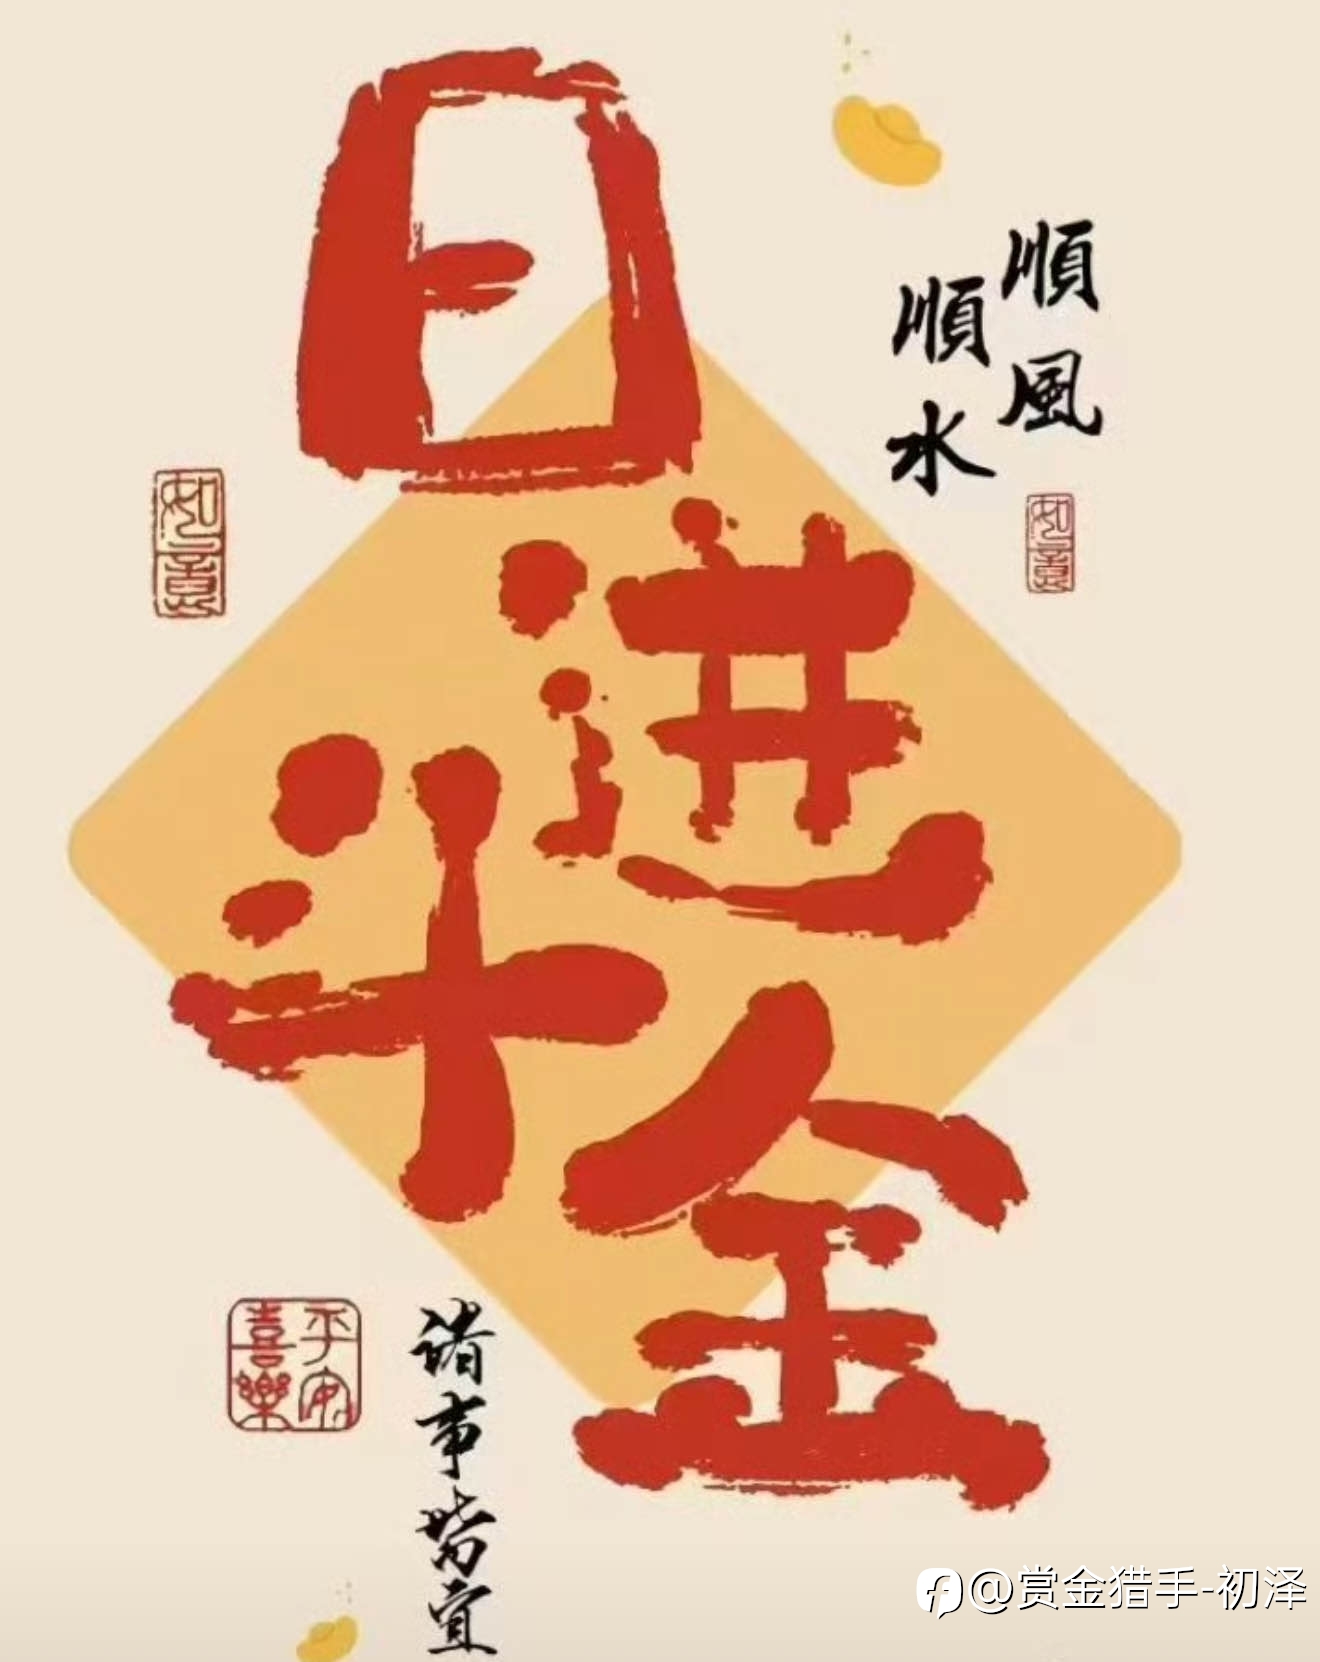 日进
斗金
順風
順水
如意
如意
平安
喜樂
诸事皆宜
@赏金猎手-初泽